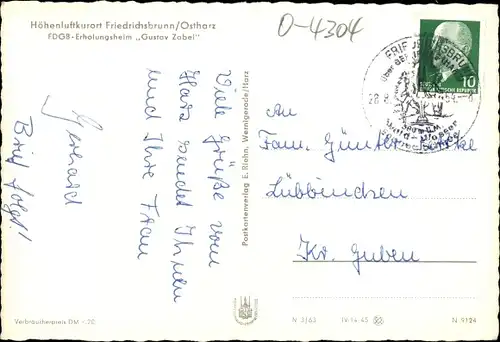 Höhenluftkurort Friedrichsbrunn/Ostharz
FDGB-Erholungsheim „Gustav Zabel"
O-4304
Viele Grüße vom
Harz sendet Ihnen
und Ihre Frau
Gerhard
Brief folgt!
Postkartenverlag E. Riehn, Wernigerode/Harz
10
An
Fam. Günter
Lübbinchen
Kr. Guben
Verbraucherpreis DM -.20
N 3/65 IV-14-45
N 9124